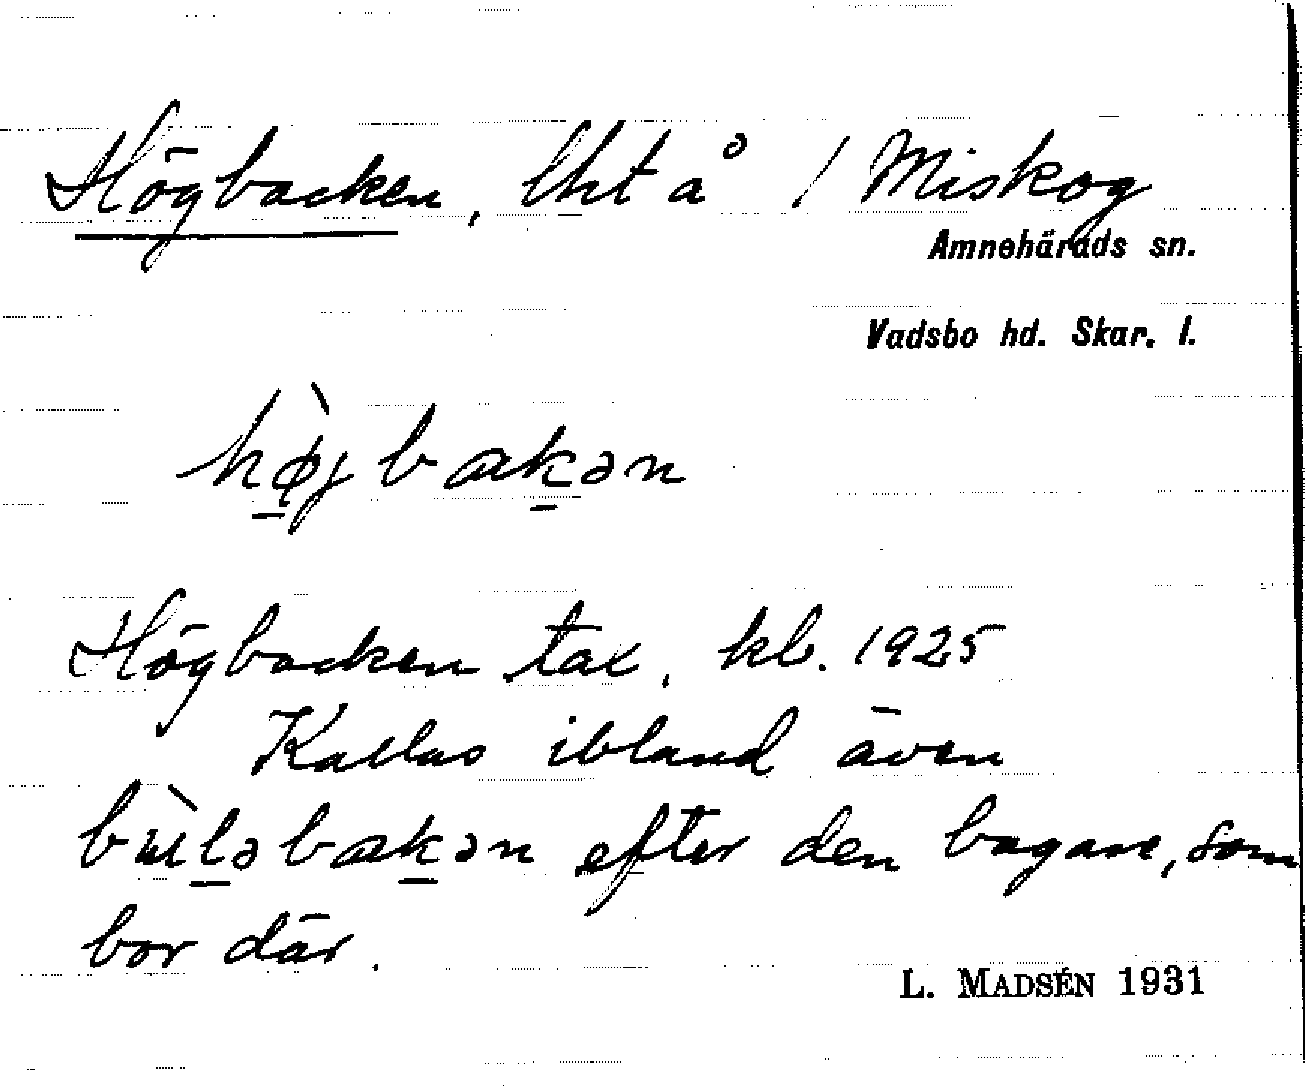 Högbacken, lht å 1 Miskog
Amnehärads sn.
Vadsbo hd. Skar. l.
hø̀jbakən
Högbacken tax. kb. 1925
Kallas ibland även
bɯ̀ləbakən efter den bagare, som
bor där.
L. MADSÉN 1931